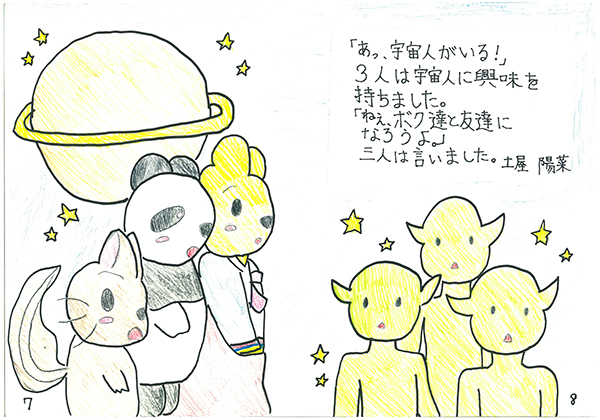 「あっ、宇宙人がいる!」
3人は宇宙人に興味を
持ちました。
「ねぇ、ボク達と友達に
なろうよ。」
三人は言いました。土屋 陽菜
7
8